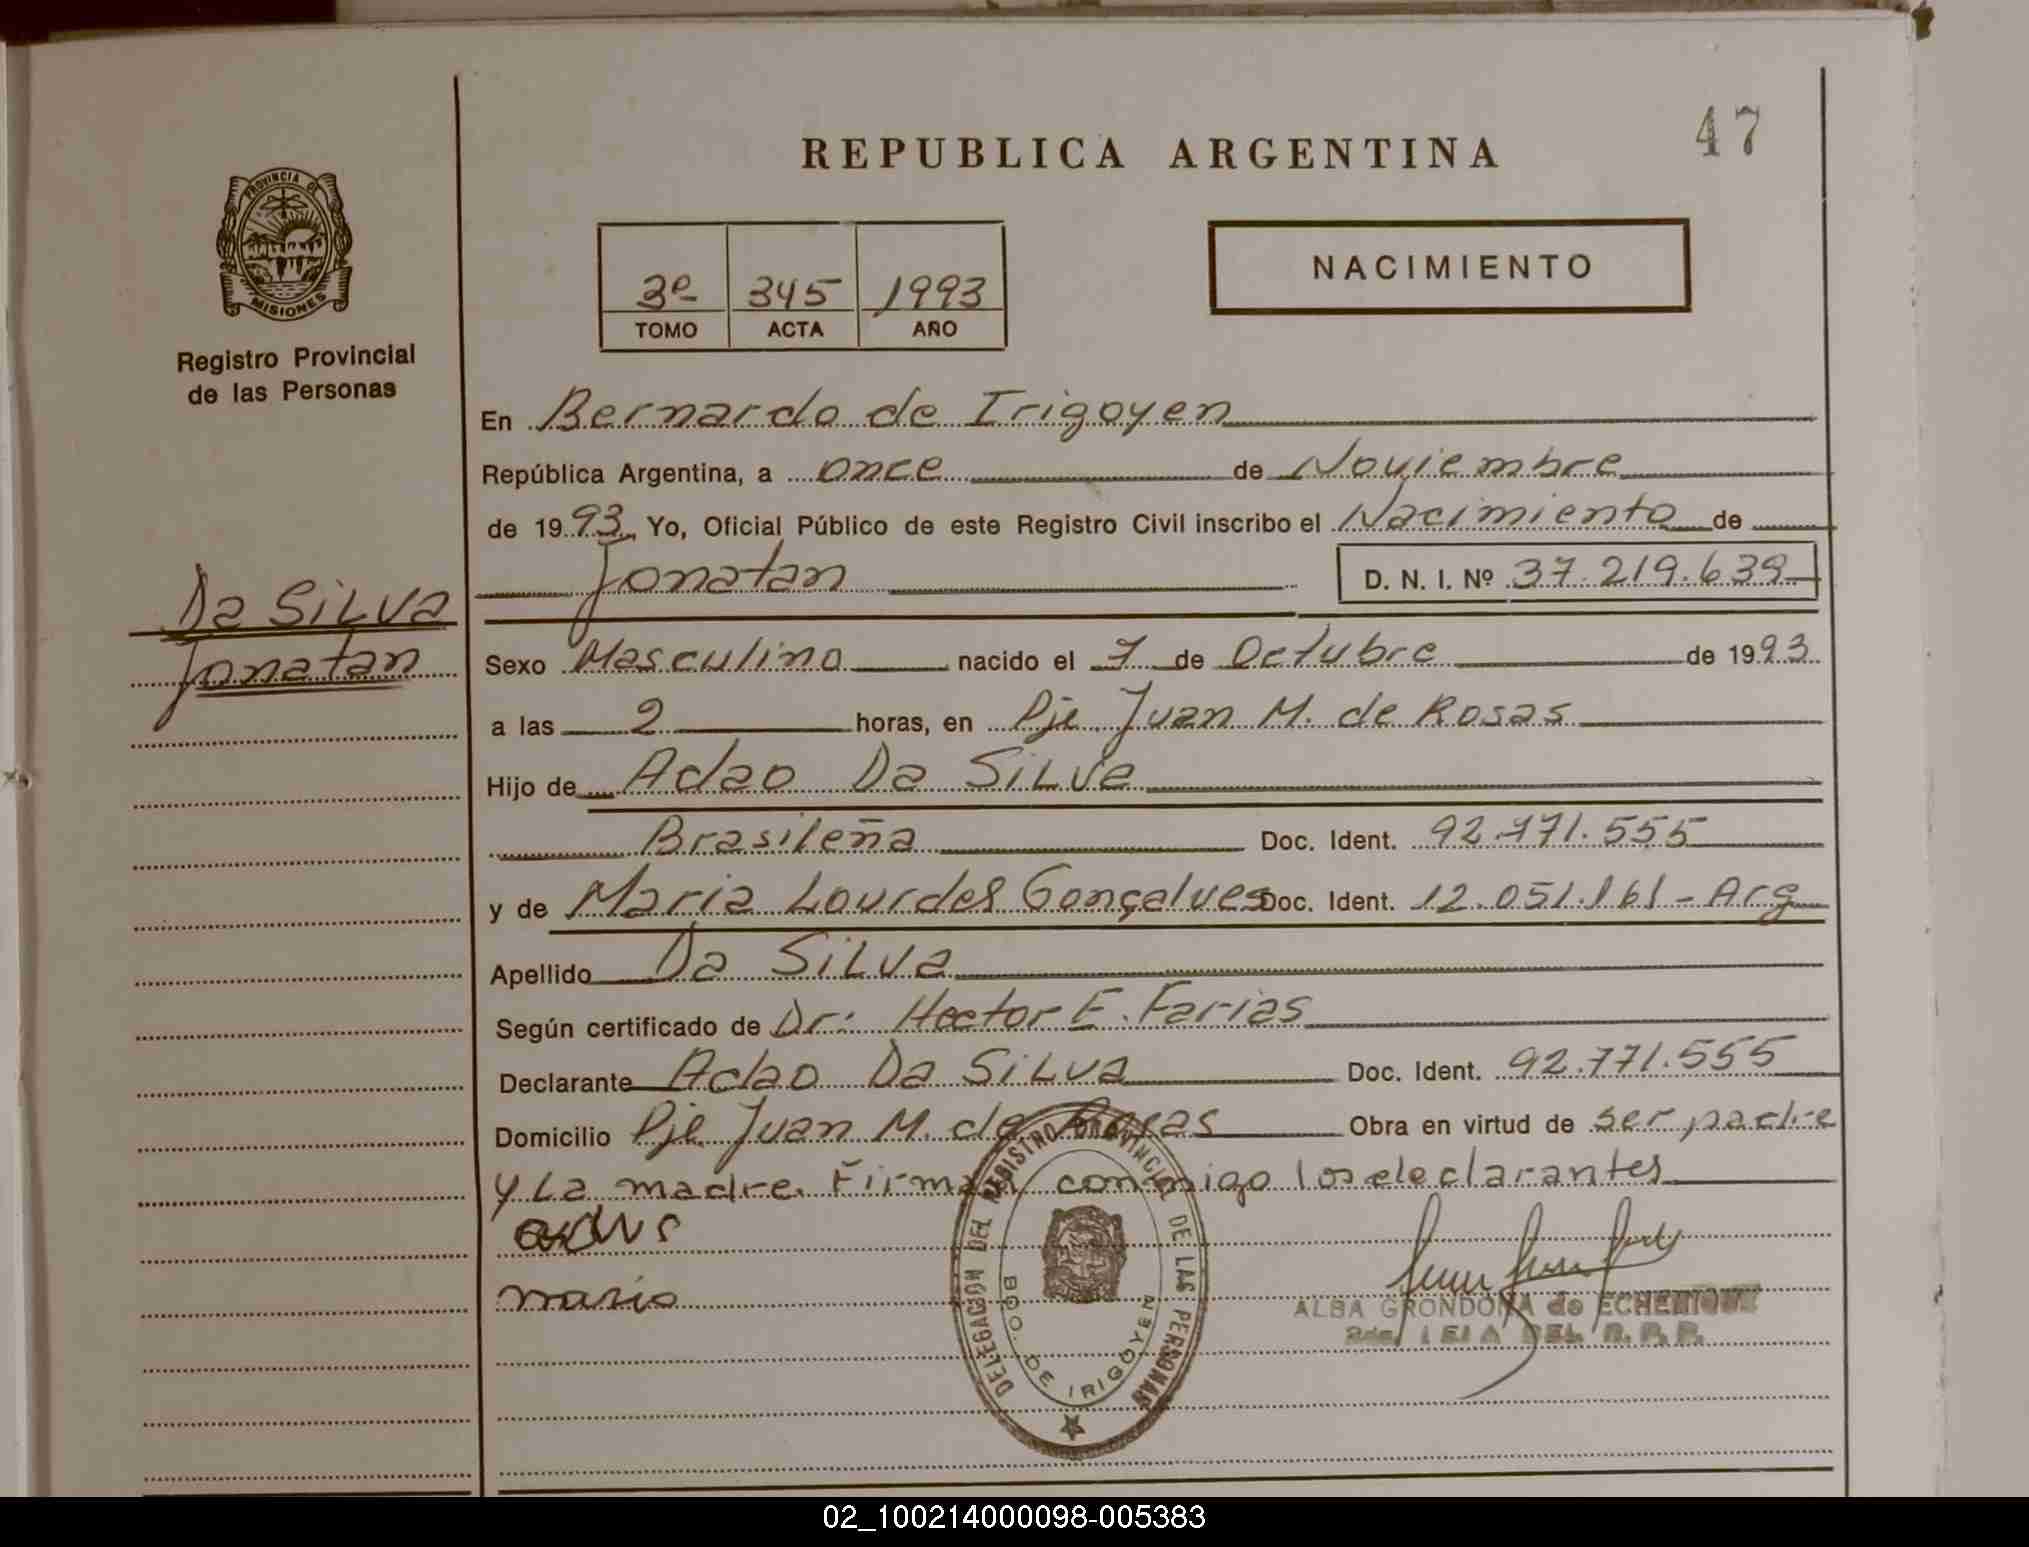 47
REPUBLICA ARGENTINA
PROVINCIA DE
MISIONES
Registro Provincial
de las Personas
3º 345 1993
TOMO ACTA AÑO
NACIMIENTO
En Bernardo de Irigoyen
República Argentina, a once de Noviembre
de 1993 Yo, Oficial Público de este Registro Civil inscribo el Nacimiento de
Jonatan D. N. I. Nº 37.219.639
Da Silva
Jonatan
Sexo Masculino nacido el 7 de Octubre de 1993
a las 2 horas, en Pje Juan M. de Rosas
Hijo de Adao Da Silva
Brasileña Doc. Ident. 92.771.555
y de Maria Lourdes Gonçalves Doc. Ident. 12.051.161 - Arg
Apellido Da Silva
Según certificado de Dr. Hector E. Farias
Declarante Adao Da Silva Doc. Ident. 92.771.555
Domicilio Pje Juan M. de Rosas Obra en virtud de ser padre
y La madre. Firman conmigo los declarantes
maria
DELEGACION DEL REGISTRO PROVINCIAL DE LAS PERSONAS
BDO. DE IRIGOYEN
ALBA GRONDONA de
DEL R. P. P.
02_100214000098-005383